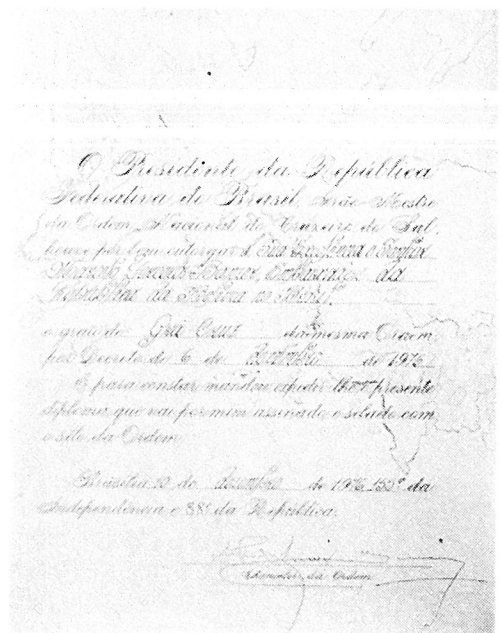 O Presidente da República
Federativa do Brasil, Grão-Mestre
da Ordem Nacional do Cruzeiro do Sul,
houve por bem outorgar a Sua Excelência o Senhor
Embaixador da
no Brasil
o grau de Grã Cruz da mesma Ordem
por Decreto de 6 de dezembro de 1976
E para constar mandou expedir presente
diploma que vae por mim assinado e selado com
o selo da Ordem
Brasília, 10 de dezembro de 1976, 155º da
Independência e 88º da República.
Chanceler da Ordem